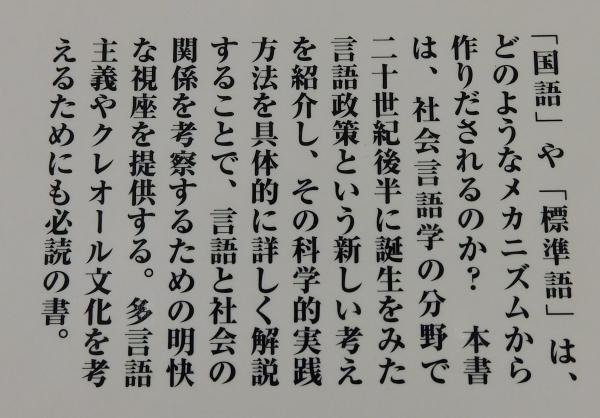 「国語」や「標準語」は、
どのようなメカニズムから
作りだされるのか？　本書
は、社会言語学の分野で
二十世紀後半に誕生をみた
言語政策という新しい考え
を紹介し、その科学的実践
方法を具体的に詳しく解説
することで、言語と社会の
関係を考察するための明快
な視座を提供する。多言語
主義やクレオール文化を考
えるためにも必読の書。